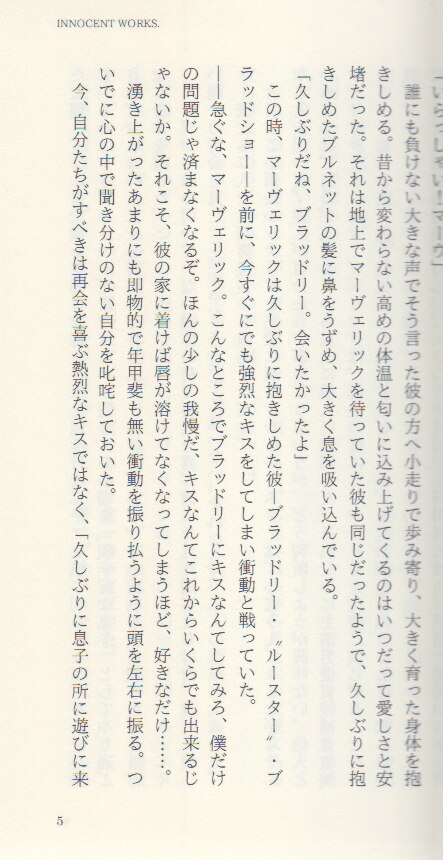 INNOCENT WORKS.
「いらっしゃい！マーヴ」
　誰にも負けない大きな声でそう言った彼の方へ小走りで歩み寄り、大きく育った身体を抱
きしめる。昔から変わらない高めの体温と匂いに込み上げてくるのはいつだって愛しさと安
堵だった。それは地上でマーヴェリックを待っていた彼も同じだったようで、久しぶりに抱
きしめたブルネットの髪に鼻をうずめ、大きく息を吸い込んでいる。
「久しぶりだね、ブラッドリー。会いたかったよ」
　この時、マーヴェリックは久しぶりに抱きしめた彼―ブラッドリー・〝ルースター〟・ブ
ラッドショー―を前に、今すぐにでも強烈なキスをしてしまい衝動と戦っていた。
――急ぐな、マーヴェリック。こんなところでブラッドリーにキスなんてしてみろ、僕だけ
の問題じゃ済まなくなるぞ。ほんの少しの我慢だ、キスなんてこれからいくらでも出来るじ
ゃないか。それこそ、彼の家に着けば唇が溶けてなくなってしまうほど、好きなだけ……。
　湧き上がったあまりにも即物的で年甲斐も無い衝動を振り払うように頭を左右に振る。つ
いでに心の中で聞き分けのない自分を叱咤しておいた。
　今、自分たちがすべきは再会を喜ぶ熱烈なキスではなく、「久しぶりに息子の所に遊びに来
5